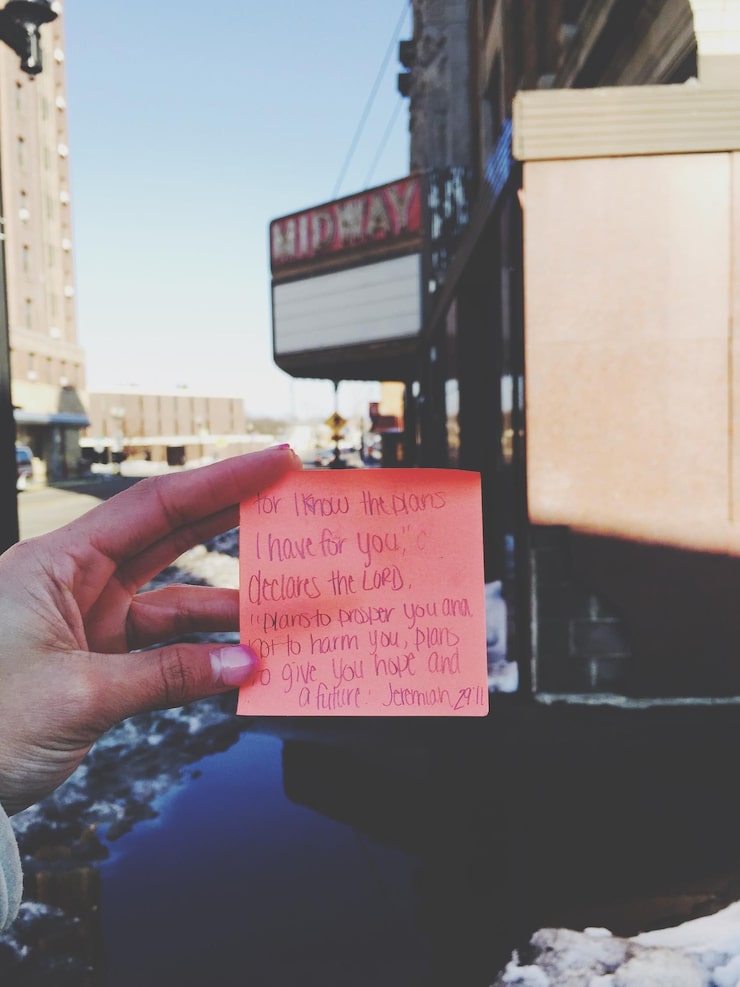 MIDWAY
for I know the plans
I have for you,"
declares the LORD,
"plans to prosper you and
not to harm you, plans
to give you hope and
a future. Jeremiah 29:11